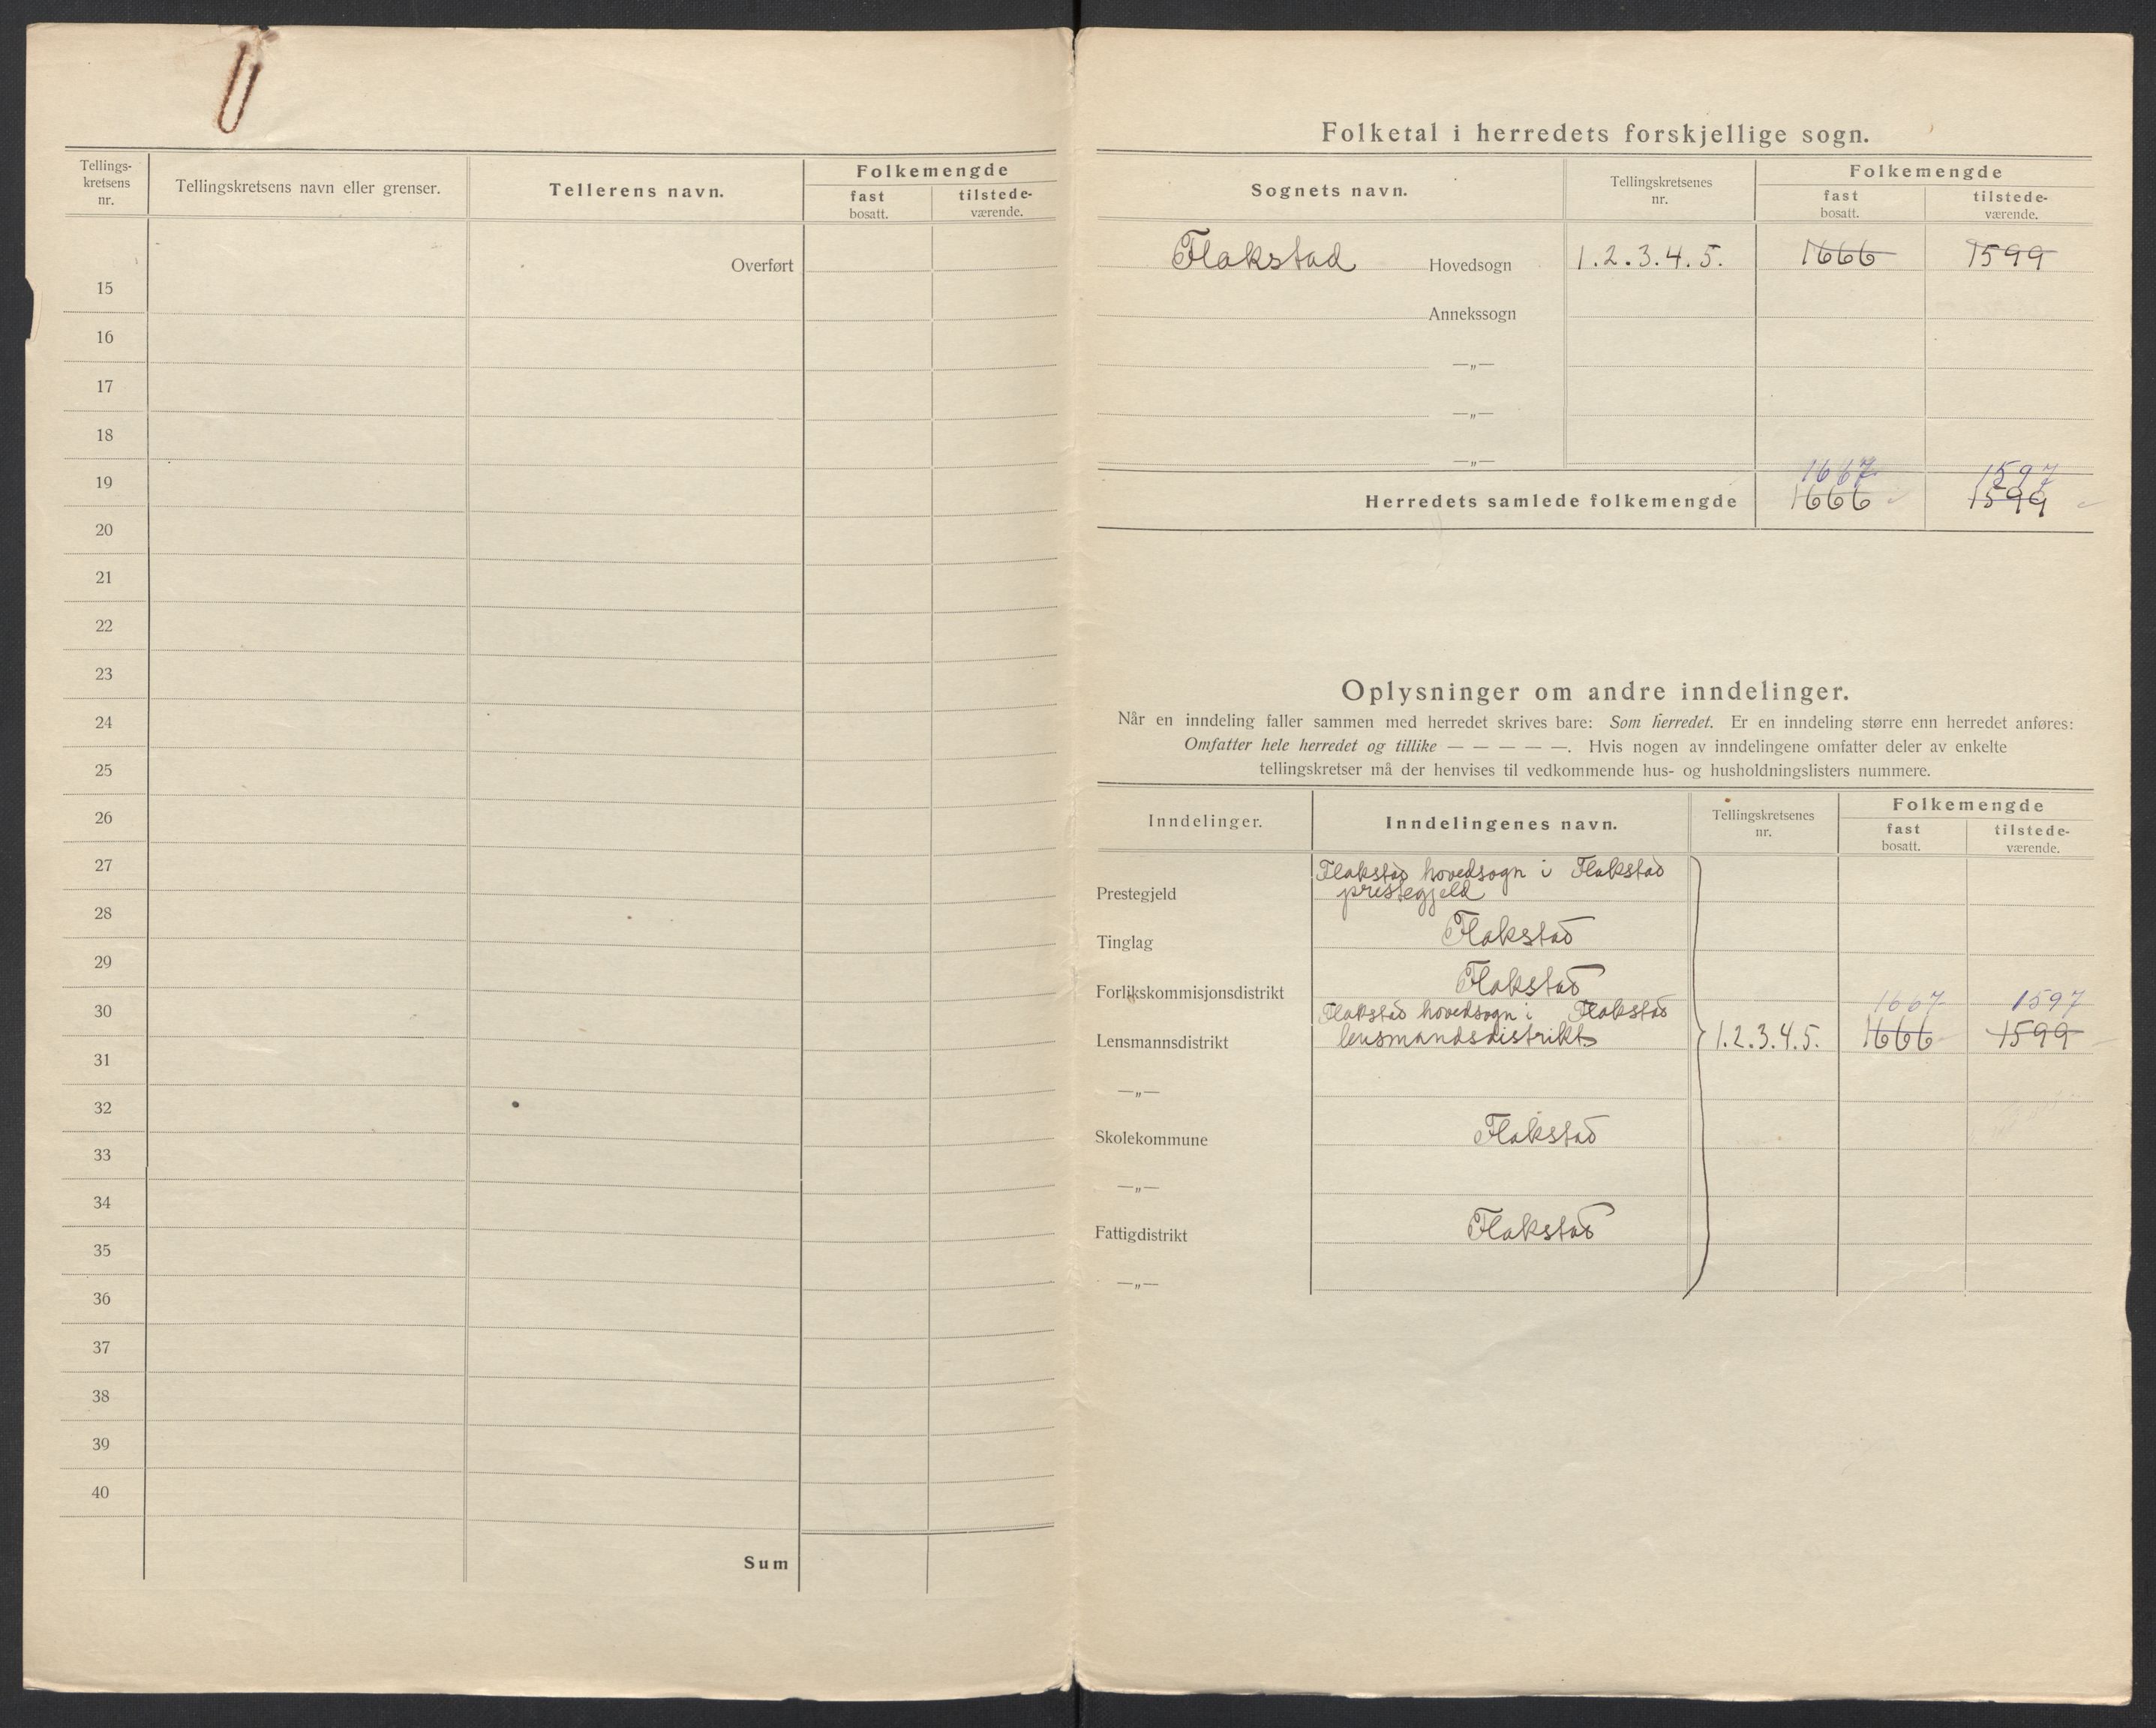 Tellings-
kretsens
nr.
Tellingskretsens navn eller grenser.
Tellerens navn.
Folkemengde
fast
bosatt.
tilstede-
værende.
Overført
15
16
17
18
19
20
21
22
23
24
25
26
27
28
29
30
31
32
33
34
35
36
37
38
39
40
Sum
Folketal i herredets forskjellige sogn.
Sognets navn.
Tellingskretsenes
nr.
Folkemengde
fast
bosatt.
tilstede-
værende.
Flakstad Hovedsogn 1.2.3.4.5. 1666 1599
Annekssogn
—„—
—„—
—„—
1667 1597
Herredets samlede folkemengde 1666 1599
Oplysninger om andre inndelinger.
Når en inndeling faller sammen med herredet skrives bare: Som herredet. Er en inndeling større enn herredet anføres:
Omfatter hele herredet og tillike — — — — —. Hvis nogen av inndelingene omfatter deler av enkelte
tellingskretser må der henvises til vedkommende hus- og husholdningslisters nummere.
Inndelinger.
Inndelingenes navn.
Tellingskretsenes
nr.
Folkemengde
fast
bosatt.
tilstede-
værende.
Flakstad hovedsogn i Flakstad
Prestegjeld prestegjeld
Tinglag Flakstad
Forlikskommisjonsdistrikt Flakstad
Flakstad hovedsogn i Flakstad 1667 1597
Lensmannsdistrikt lensmandsdistrikt 1.2.3.4.5. 1666 1599
—„—
Skolekommune Flakstad
—„—
Fattigdistrikt Flakstad
—„—